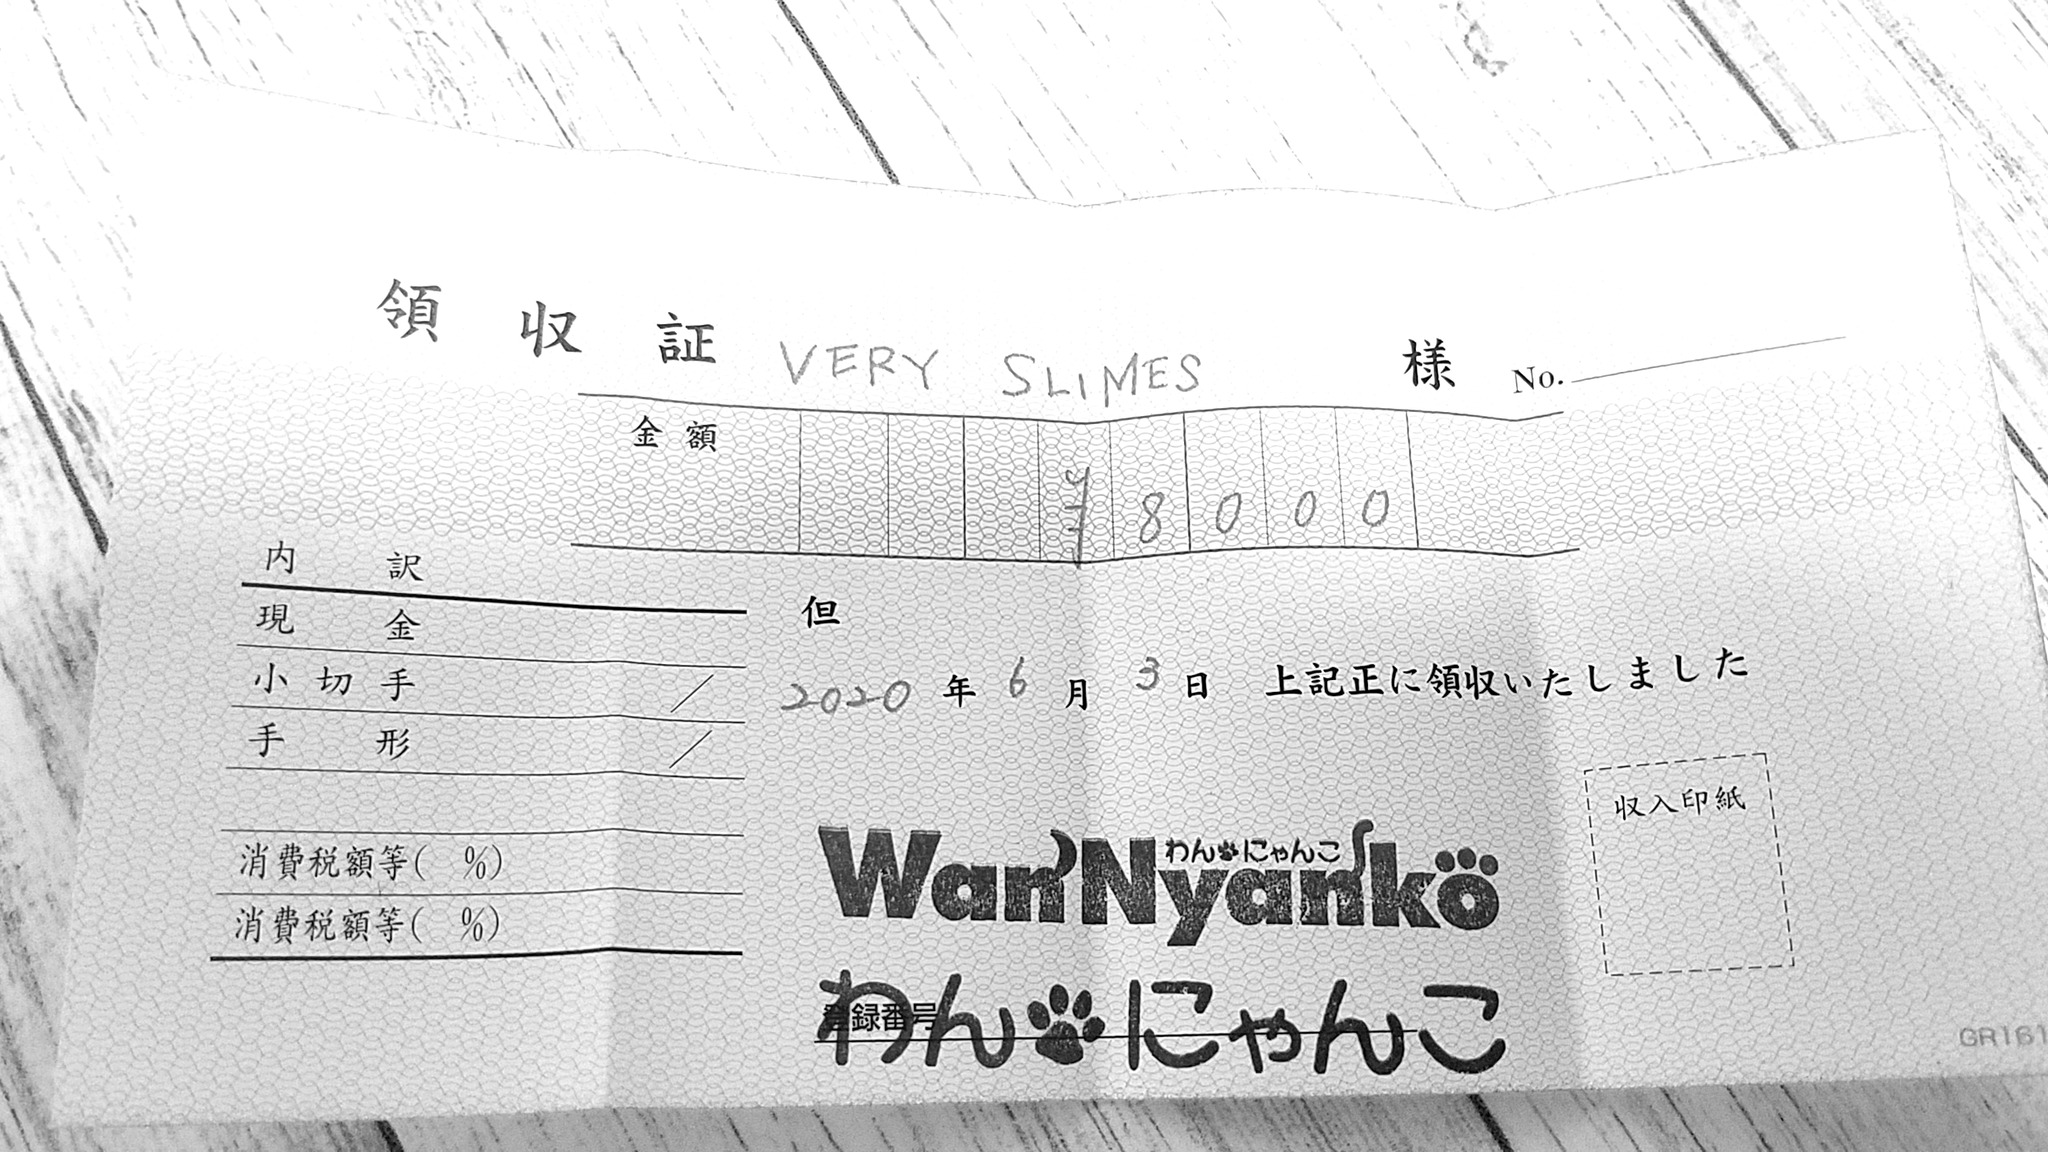 領収証 VERY SLIMES 様 No.
金額 ¥8000
内訳
現金
小切手 /
手形 /
消費税額等( %)
消費税額等( %)
但
2020年6月3日 上記正に領収いたしました
収入印紙
わんにゃんこ
WanNyanko
わんにゃんこ
登録番号
GR161